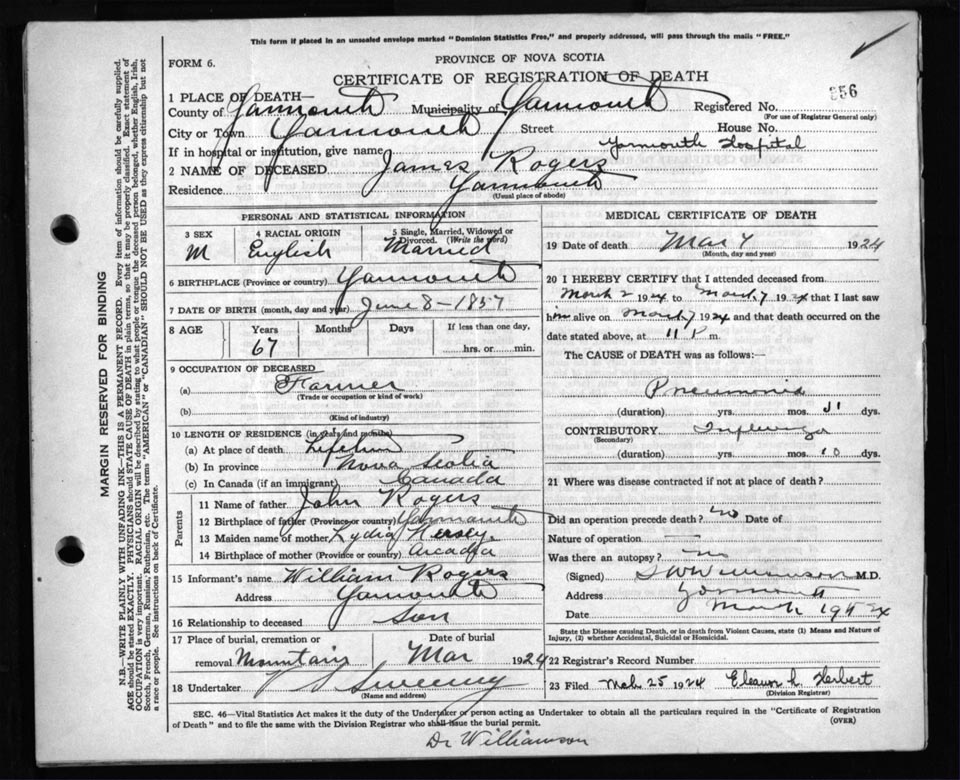 This form if placed in an unsealed envelope marked "Dominion Statistics Free," and properly addressed, will pass through the mails "FREE."
FORM 6.
PROVINCE OF NOVA SCOTIA
CERTIFICATE OF REGISTRATION OF DEATH
1 PLACE OF DEATH—
County of Yarmouth Municipality of Yarmouth Registered No. 356
(For use of Registrar General only)
City or Town Yarmouth Street House No.
If in hospital or institution, give name Yarmouth Hospital
2 NAME OF DECEASED James Rogers
Residence Yarmouth
(Usual place of abode)
MARGIN RESERVED FOR BINDING
N.B.—WRITE PLAINLY WITH UNFADING INK—THIS IS A PERMANENT RECORD. Every item of information should be carefully supplied.
AGE should be stated EXACTLY. PHYSICIANS should STATE CAUSE OF DEATH in plain terms, so that it may be properly classified. Exact statement of
OCCUPATION is very important. RACIAL ORIGIN will be described by stating to what people or tongue the deceased person belonged, whether English, Irish,
Scotch, French, German, Russian, Ruthenian, etc. The terms "AMERICAN" or "CANADIAN" SHOULD NOT BE USED as they express citizenship but not
a race or people. See instructions on back of Certificate.
PERSONAL AND STATISTICAL INFORMATION
3 SEX M
4 RACIAL ORIGIN English
5 Single, Married, Widowed or
Divorced. (Write the word) Married
6 BIRTHPLACE (Province or country) Yarmouth
7 DATE OF BIRTH (month, day and year) June 8 - 1857
8 AGE Years Months Days If less than one day,
67 hrs. or min.
9 OCCUPATION OF DECEASED
(a) Farmer
(Trade or occupation or kind of work)
(b)
(Kind of industry)
10 LENGTH OF RESIDENCE (in years and months)
(a) At place of death Lifetime
(b) In province Nova Scotia
(c) In Canada (if an immigrant) Canada
Parents
11 Name of father John Rogers
12 Birthplace of father (Province or country) Yarmouth
13 Maiden name of mother Lydia Kersey
14 Birthplace of mother (Province or country) Arcadia
15 Informant's name William Rogers
Address Yarmouth
16 Relationship to deceased Son
17 Place of burial, cremation or Date of burial
removal Mountain Mar 1924
18 Undertaker Sweeny
(Name and address)
MEDICAL CERTIFICATE OF DEATH
19 Date of death Mar 7 1924
(Month, day and year)
20 I HEREBY CERTIFY that I attended deceased from
March 2 1924 to March 7 1924 that I last saw
him alive on March 7 1924 and that death occurred on the
date stated above, at 11 P m.
The CAUSE of DEATH was as follows:—
Pneumonia
(duration) yrs. mos. dys.
CONTRIBUTORY Influenza
(Secondary)
(duration) yrs. mos. 10 dys.
21 Where was disease contracted if not at place of death?
Did an operation precede death? no Date of
Nature of operation —
Was there an autopsy? no
(Signed) Williamson M.D.
Address Yarmouth
Date March 1924
State the Disease causing Death, or in death from Violent Causes, state (1) Means and Nature of
Injury, (2) whether Accidental, Suicidal or Homicidal.
22 Registrar's Record Number
23 Filed Mch 25 1924 Eleanor L. Herbert
(Division Registrar)
SEC. 46—Vital Statistics Act makes it the duty of the Undertaker or person acting as Undertaker to obtain all the particulars required in the "Certificate of Registration
of Death" and to file the same with the Division Registrar who shall issue the burial permit. (OVER)
Dr Williamson